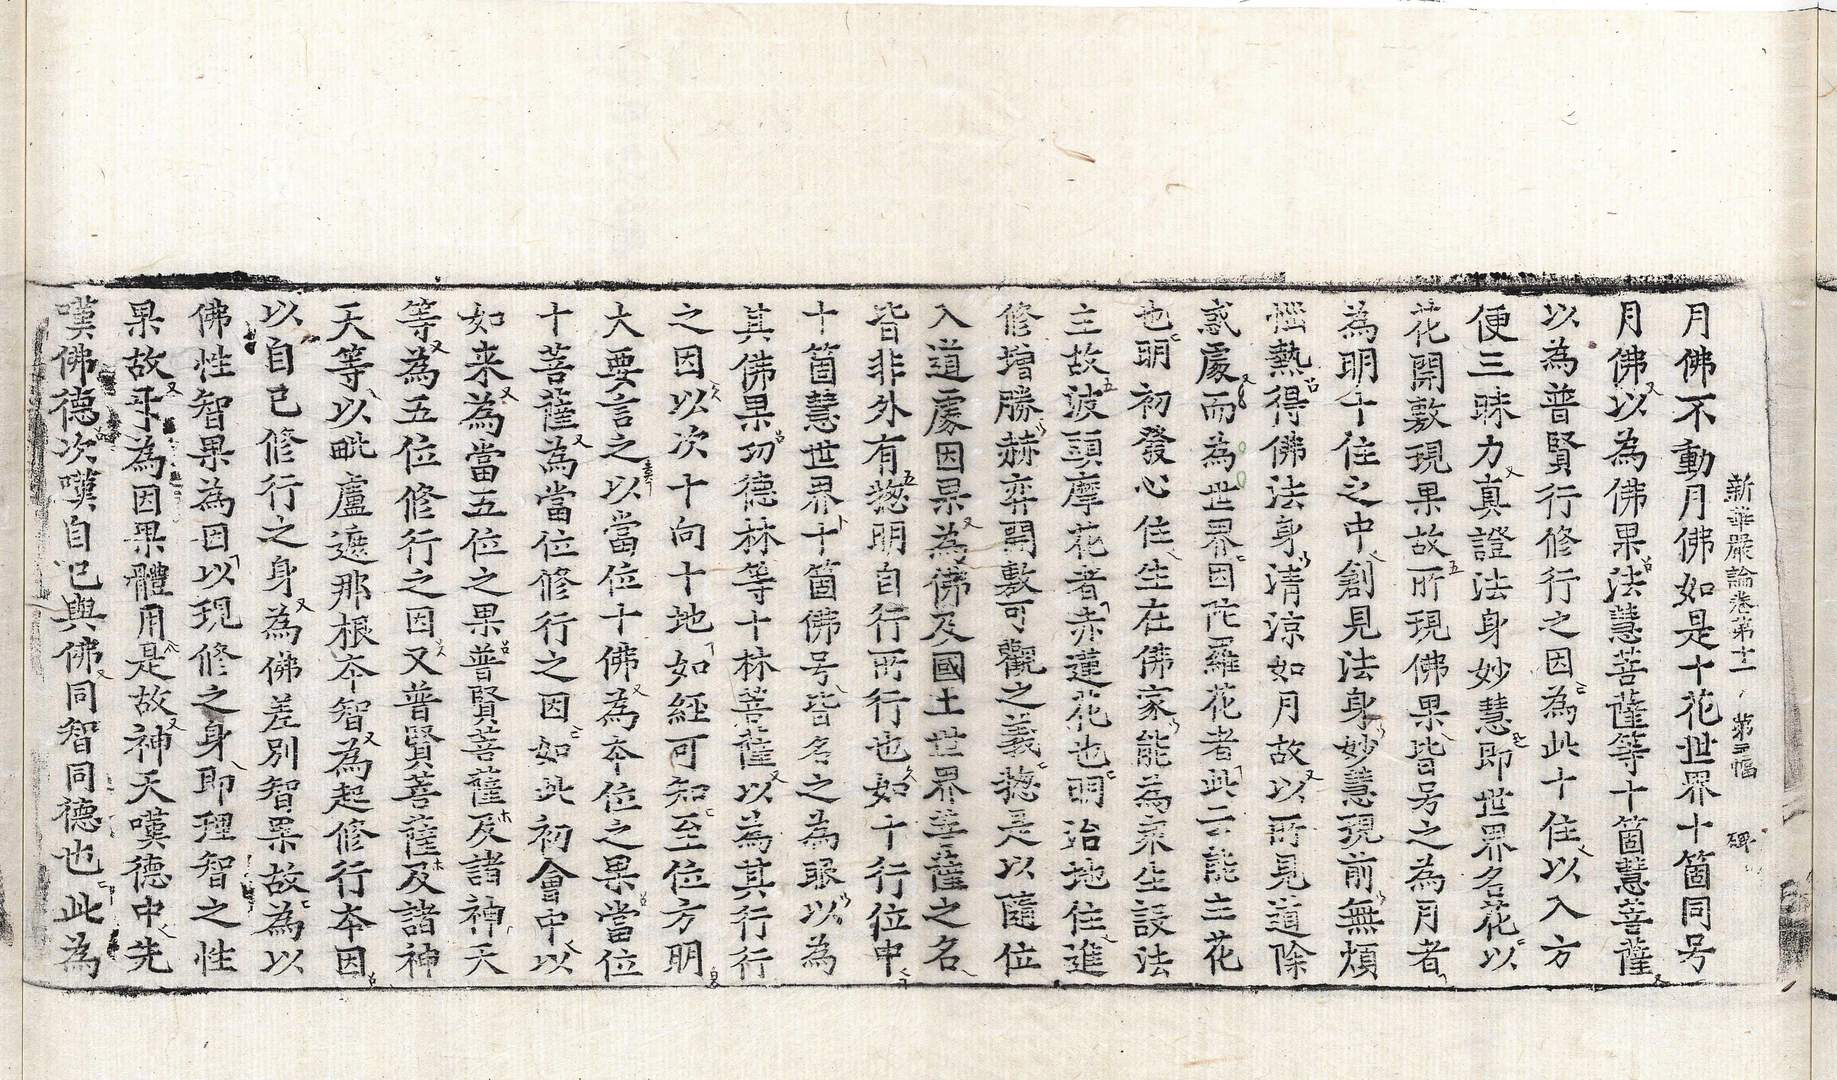 新華嚴論卷第十一 第三幅 碑
月佛不動月佛如是十花世界十箇同号
月佛以為佛果法慧菩薩等十箇慧菩薩
以為普賢行修行之因為此十住以入方
便三昧力真證法身妙慧即世界名花以
花開敷現果故所現佛果皆号之為月者
為明十住之中創見法身妙慧現前無煩
惱熱得佛法身清涼如月故以所見道除
惑處而為世界因陀羅花者此云能主花
也明初發心住生在佛家能為衆生說法
主故波頭摩花者赤蓮花也明治地住進
修增勝赫弈開敷可觀之義揔是以隨位
入道處因果為佛及國土世界菩薩之名
皆非外有揔明自行所行也如十行位中
十箇慧世界十箇佛号皆名之為眼以為
其佛果功德林等十林菩薩以為其行行
之因以次十向十地如經可知至位方明
大要言之以當位十佛為夲位之果當位
十菩薩為當位修行之因如此初會中以
如来為當五位之果普賢菩薩及諸神天
等為五位修行之因又普賢菩薩及諸神
天等以毗盧遮那根夲智為起修行夲因
以自己修行之身為佛差別智果故為以
佛性智果為因以現修之身即理智之性
果故号為因果體用是故神天嘆德中先
嘆佛德次嘆自己與佛同智同德也此為